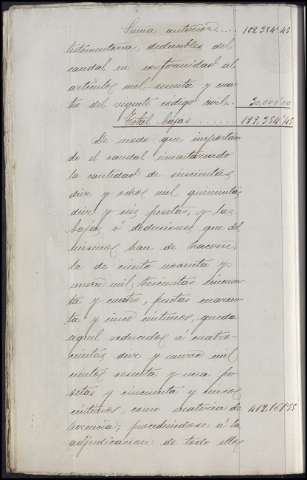 Suma anterior.... 169.354'45
testamentaria, deducibles del
caudal en conformidad al
artículo mil sesenta y cua-
tro del vigente código civil. 30.000'00
Total bajas ........ 199.354'45
De modo que importan-
do el caudal inventariado
la cantidad de seiscientas
diez y ocho mil quinientas
diez y seis pesetas, y las
bajas ó deducciones que del
mismo han de hacerse,
la de ciento noventa y
nueve mil, trescientas cincuen-
ta y cuatro, pesetas cuaren-
ta y cinco céntimos, queda
aquel reducido á cuatro-
cientas diez y nueve mil
ciento sesenta y una pe-
setas y cincuenta y cinco
céntimos, como materia de 419.161'55
herencia; procediendose á la
adjudicacion de todo ello